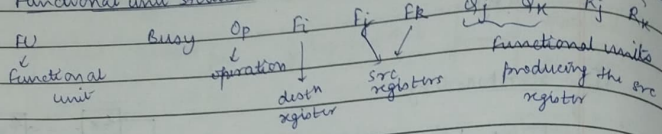 Functional unit
FU Busy Op Fi Fj Fk Qj Qk Rj Rk
functional unit
operation
destn register
src registers
Functional units producing the src register